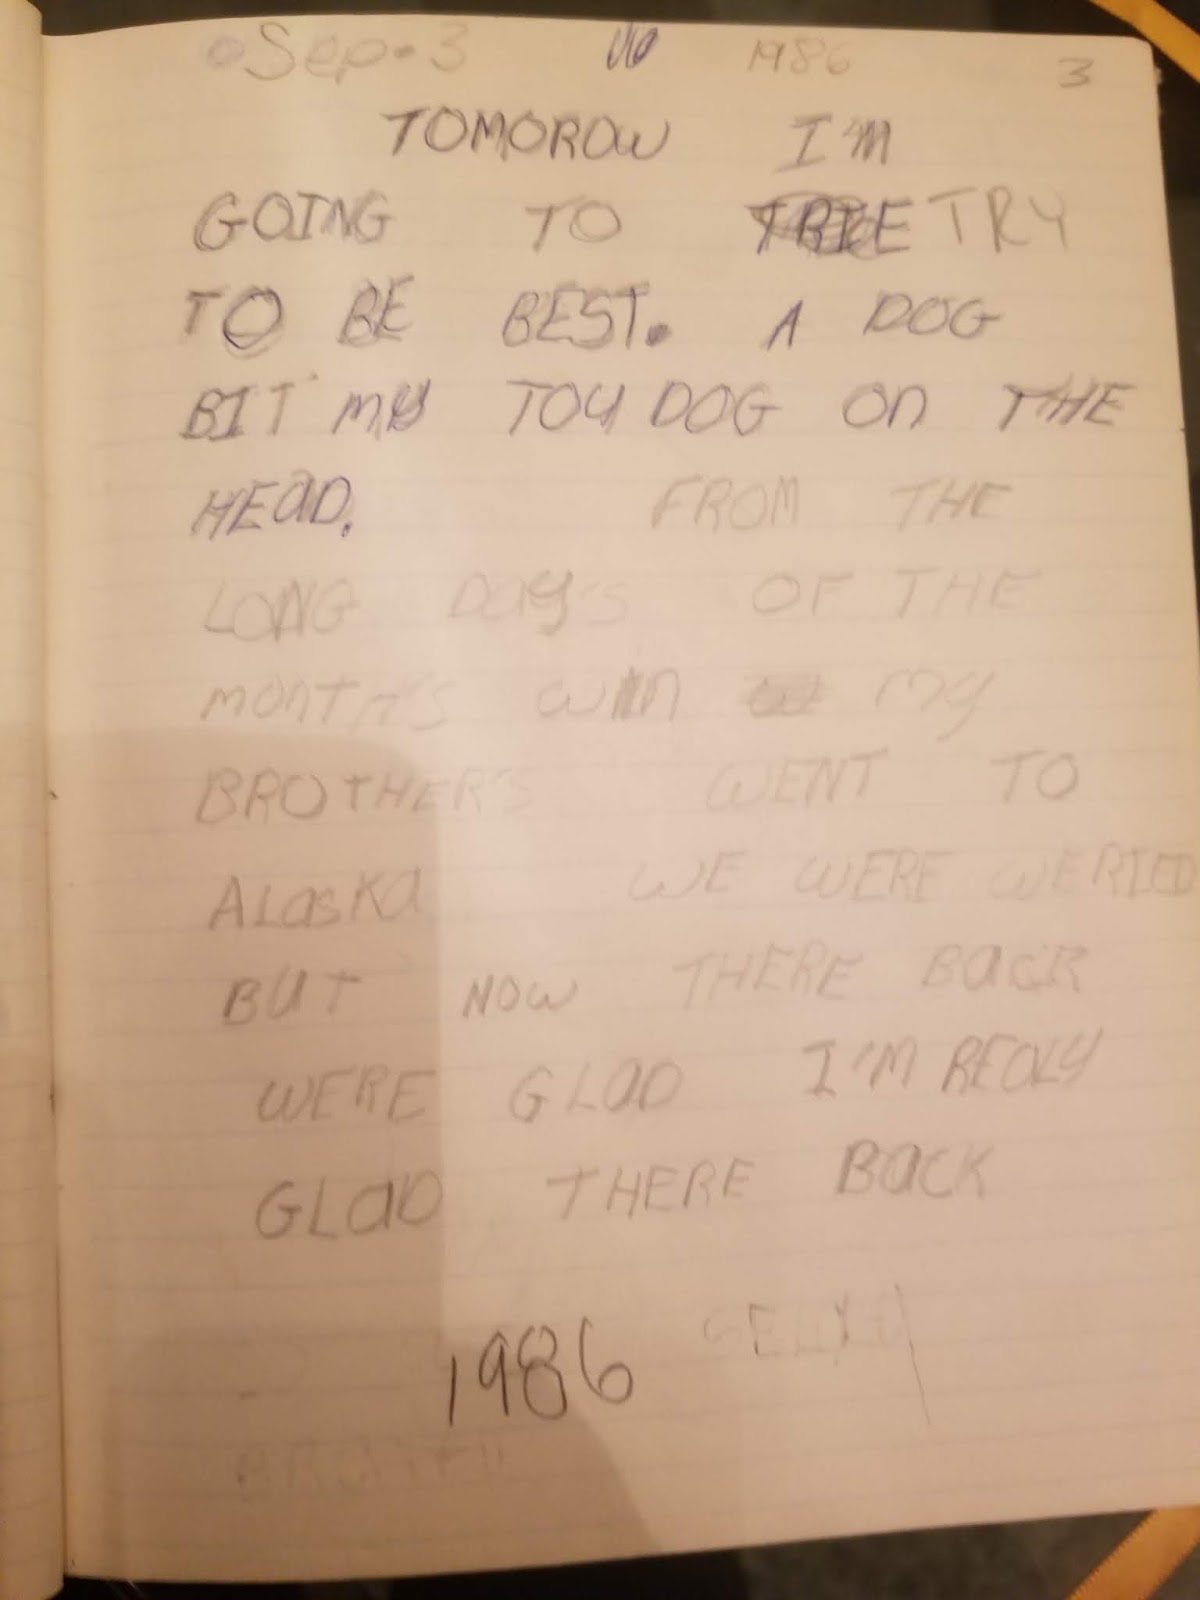 Sep. 3 1986 3
TOMOROW I'M
GOING TO TRIE TRY
TO BE BEST. A DOG
BIT MY TOY DOG ON THE
HEaD.
FROM THE
LONG Day's OF THE
MONTH'S my
BROTHER'S WENT TO
ALasKa WE WERE WERIED
BUT NOW THERE BaCK
WERE GLaD I'M REALY
GLaD THERE BaCK
1986